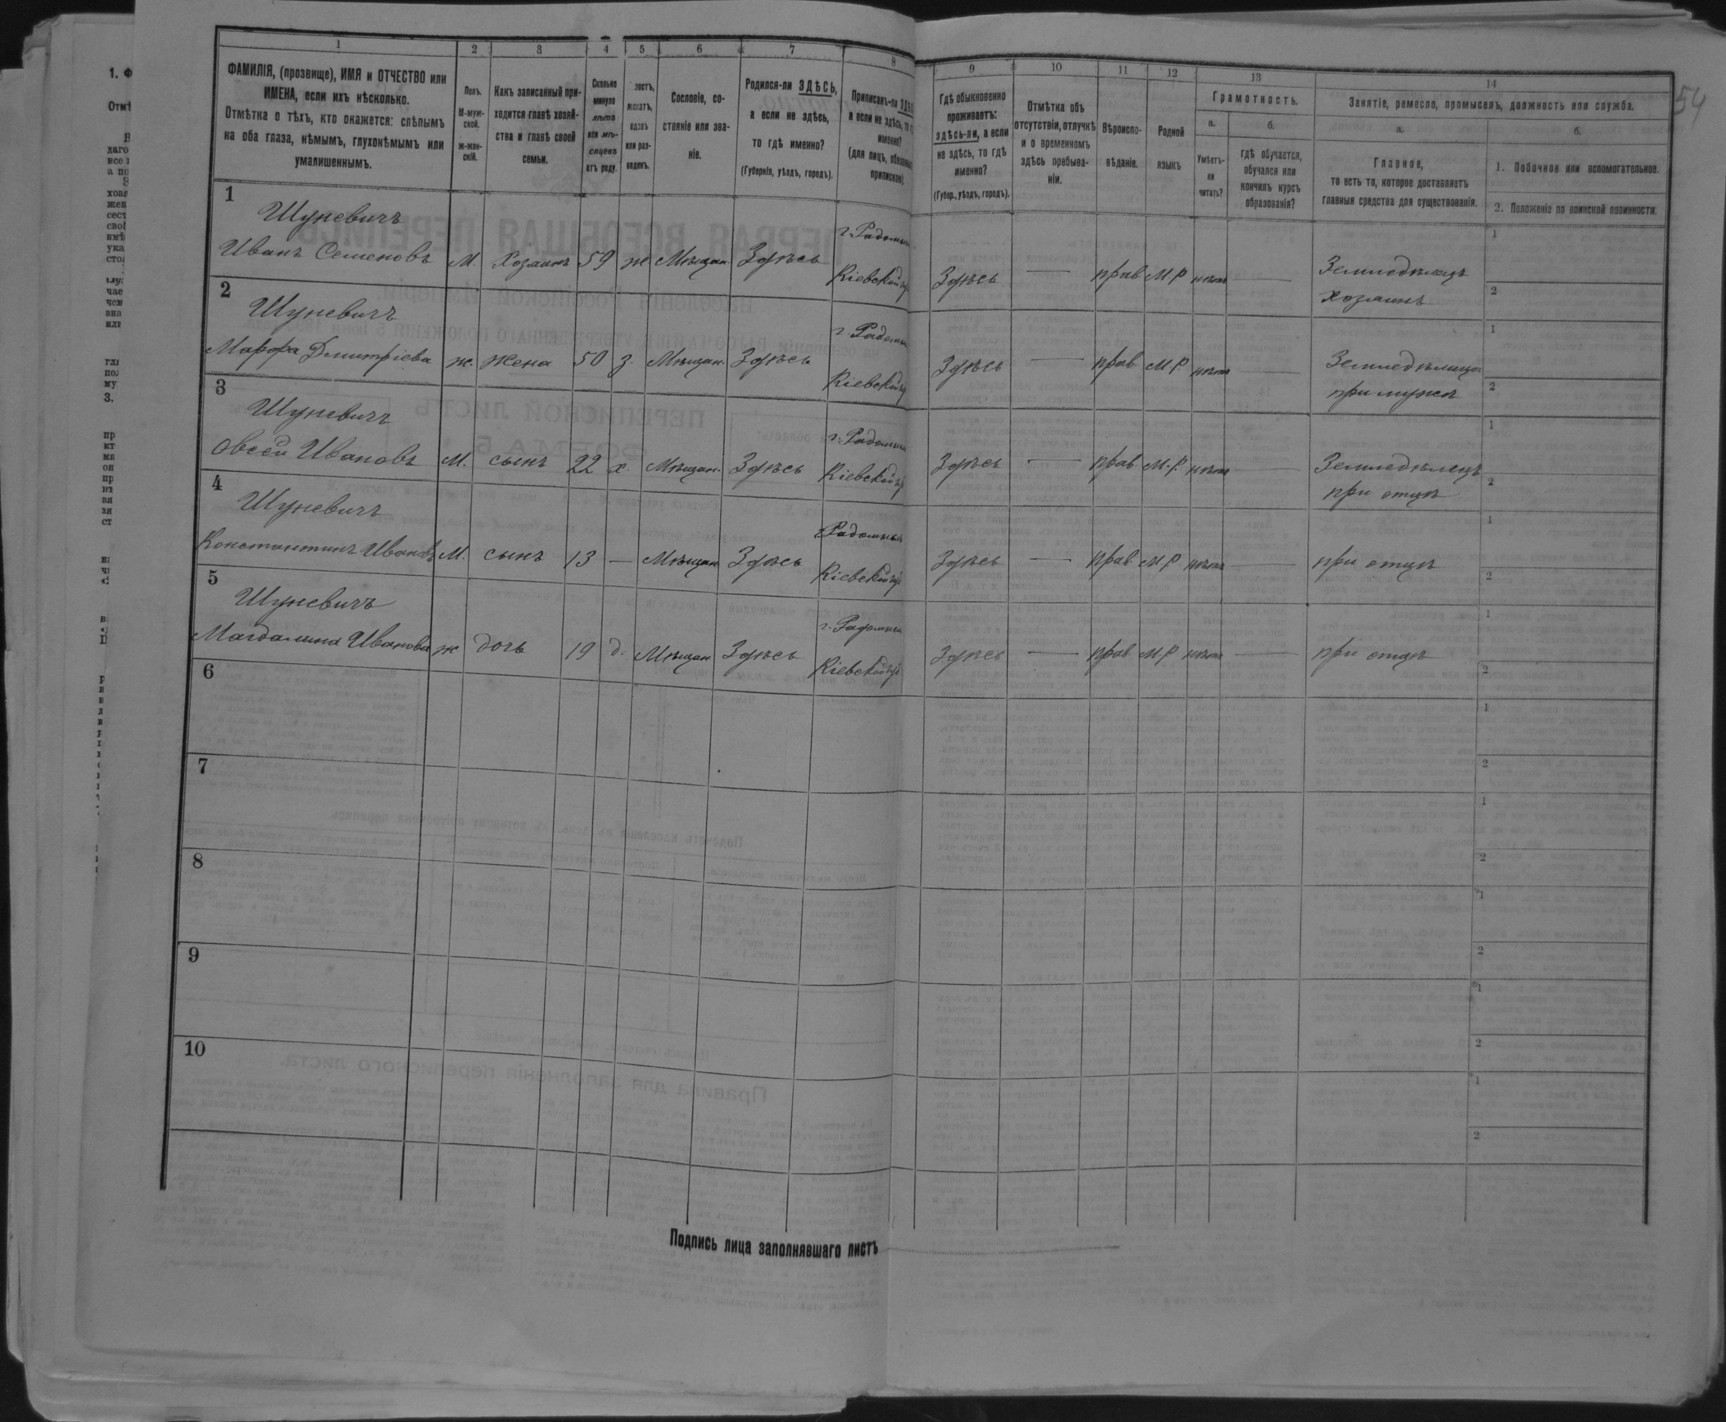 54
1 2 3 4 5 6 7 8 9 10 11 12 13 14
ФАМИЛІЯ, (прозвище), ИМЯ и ОТЧЕСТВО или
ИМЕНА, если ихъ нѣсколько.
Отмѣтка о тѣхъ, кто окажется: слѣпымъ
на оба глаза, нѣмымъ, глухонѣмымъ или
умалишеннымъ.
Полъ.
М-муж-
ской.
ж-жен-
скій.
Какъ записанный при-
ходится главѣ хозяй-
ства и главѣ своей
семьи.
Сколько
минуло
лѣтъ
или мѣ-
сяцевъ
отъ роду.
Сословіе, со-
стояніе или зва-
ніе.
Родился-ли ЗДѢСЬ,
а если не здѣсь,
то гдѣ именно?
(Губернія, уѣздъ, городъ).
Приписанъ-ли
а если не здѣсь,
именно?
(для лицъ,
Гдѣ обыкновенно
проживаетъ:
здѣсь-ли, а если
не здѣсь, то гдѣ
именно?
(Губер., уѣздъ, городъ).
Отмѣтка объ
отсутствіи, отлучкѣ
и о временномъ
здѣсь пребыва-
ніи.
Вѣроиспо-
вѣданіе.
Родной
языкъ
Грамотность.
а.
Умѣетъ-
ли
читать?
б.
гдѣ обучается,
обучался или
кончилъ курсъ
образованія?
Занятіе, ремесло, промыселъ, должность или служба.
а.
Главное,
то есть то, которое доставляетъ
главныя средства для существованія.
б.
1. Побочное или вспомогательное.
2. Положеніе по воинской повинности.
1
Шуневичъ г. Радомысль
Иванъ Семеновъ М. Хозяинъ 59 ж Мѣщан Здѣсь Кіевской Здѣсь — прав М Р нѣтъ — Земледѣлецъ
хозяинъ
2
Шуневичъ г. Радомысль
Марфа Дмитріева ж. жена 50 з. Мѣщан. Здѣсь Кіевской Здѣсь — прав М Р нѣтъ — Земледѣлица
при мужѣ
3
Шуневичъ
Овсѣй Ивановъ М. сынъ 22 х. Мѣщан. Здѣсь Кіевской Здѣсь — прав М.Р. нѣтъ — Земледѣлецъ
при отцѣ
4
Шуневичъ
Константинъ Ивановъ М. сынъ 13 — Мѣщан Здѣсь Кіевской Здѣсь — прав М Р нѣтъ — при отцѣ
5
Шуневичъ
Магдалина Иванова ж дочь 19 д. Мѣщан Здѣсь Кіевской Здѣсь — прав М Р нѣтъ — при отцѣ
6
7
8
9
10
Подпись лица заполнявшаго листъ